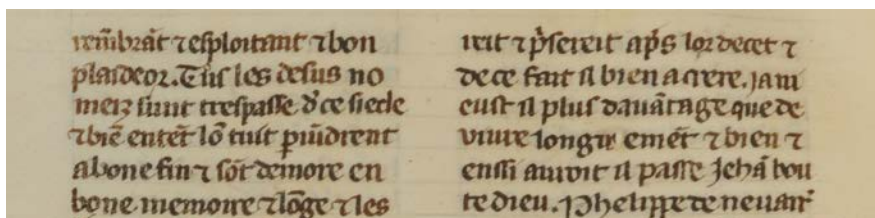 remēbrāt ⁊ esploitant ⁊ bon
plaideor. Tuis les desus no
meiz sunt trespasse d'ce siecle
⁊ biē entēt lō tuit
a bone fin ⁊ sōt demore en
bone memoire ⁊ lōge ⁊ les
⁊ ap̄s lor decet ⁊
de ce fait il bien a crere. Jam
eust il plus davātage que de
vivre longu emēt ⁊ bien ⁊
enssi avroit il passe Jehā bou
te dieu. Phelippe de nevair̄